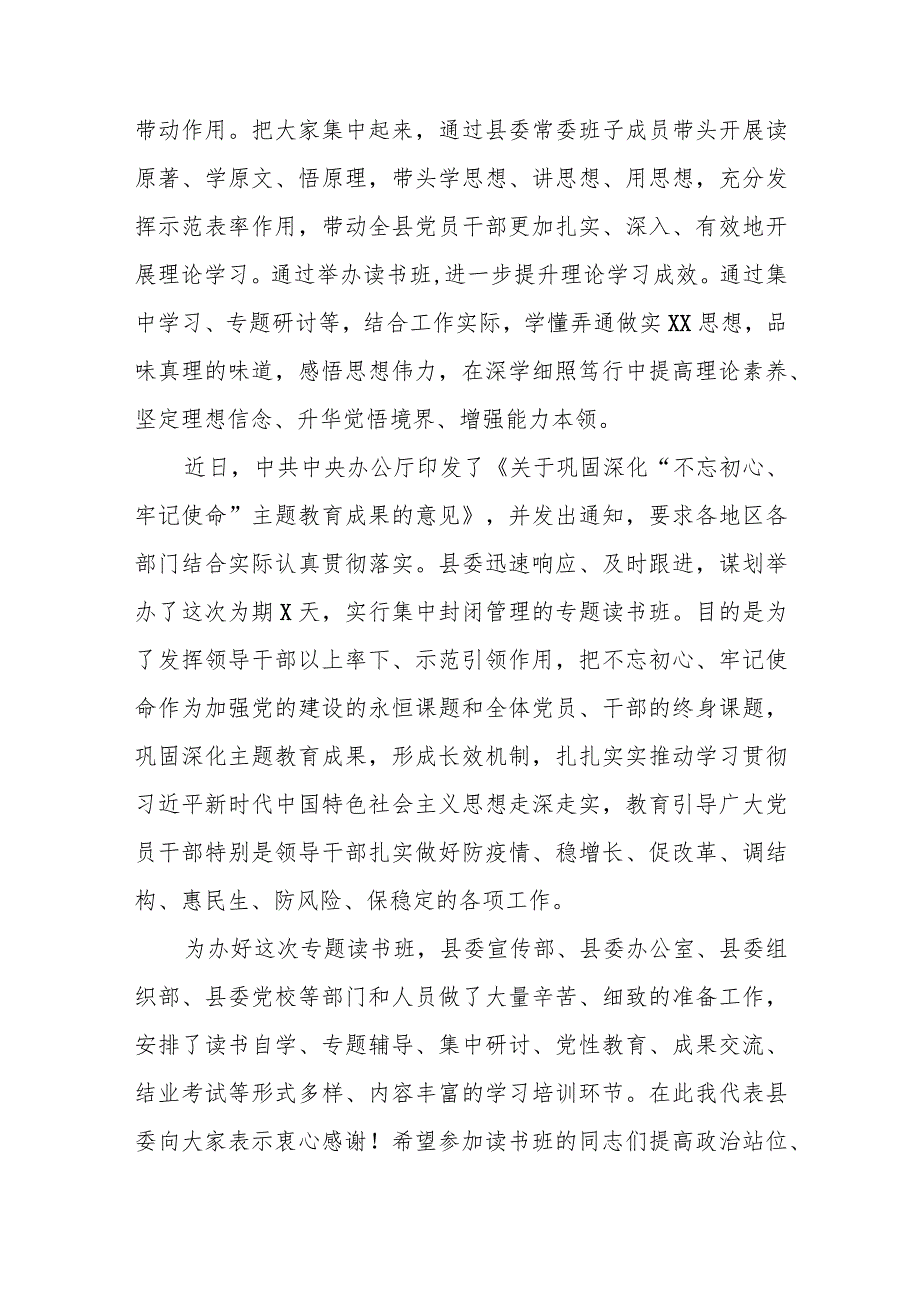 带动作用。把大家集中起来，通过县委常委班子成员带头开展读
原著、学原文、悟原理，带头学思想、讲思想、用思想，充分发
挥示范表率作用，带动全县党员干部更加扎实、深入、有效地开
展理论学习。通过举办读书班,进一步提升理论学习成效。通过集
中学习、专题研讨等，结合工作实际，学懂弄通做实XX思想，品
味真理的味道，感悟思想伟力，在深学细照笃行中提高理论素养、
坚定理想信念、升华觉悟境界、增强能力本领。
近日，中共中央办公厅印发了《关于巩固深化“不忘初心、
牢记使命”主题教育成果的意见》，并发出通知，要求各地区各
部门结合实际认真贯彻落实。县委迅速响应、及时跟进，谋划举
办了这次为期X天，实行集中封闭管理的专题读书班。目的是为
了发挥领导干部以上率下、示范引领作用，把不忘初心、牢记使
命作为加强党的建设的永恒课题和全体党员、干部的终身课题，
巩固深化主题教育成果，形成长效机制，扎扎实实推动学习贯彻
习近平新时代中国特色社会主义思想走深走实，教育引导广大党
员干部特别是领导干部扎实做好防疫情、稳增长、促改革、调结
构、惠民生、防风险、保稳定的各项工作。
为办好这次专题读书班，县委宣传部、县委办公室、县委组
织部、县委党校等部门和人员做了大量辛苦、细致的准备工作，
安排了读书自学、专题辅导、集中研讨、党性教育、成果交流、
结业考试等形式多样、内容丰富的学习培训环节。在此我代表县
委向大家表示衷心感谢！希望参加读书班的同志们提高政治站位、